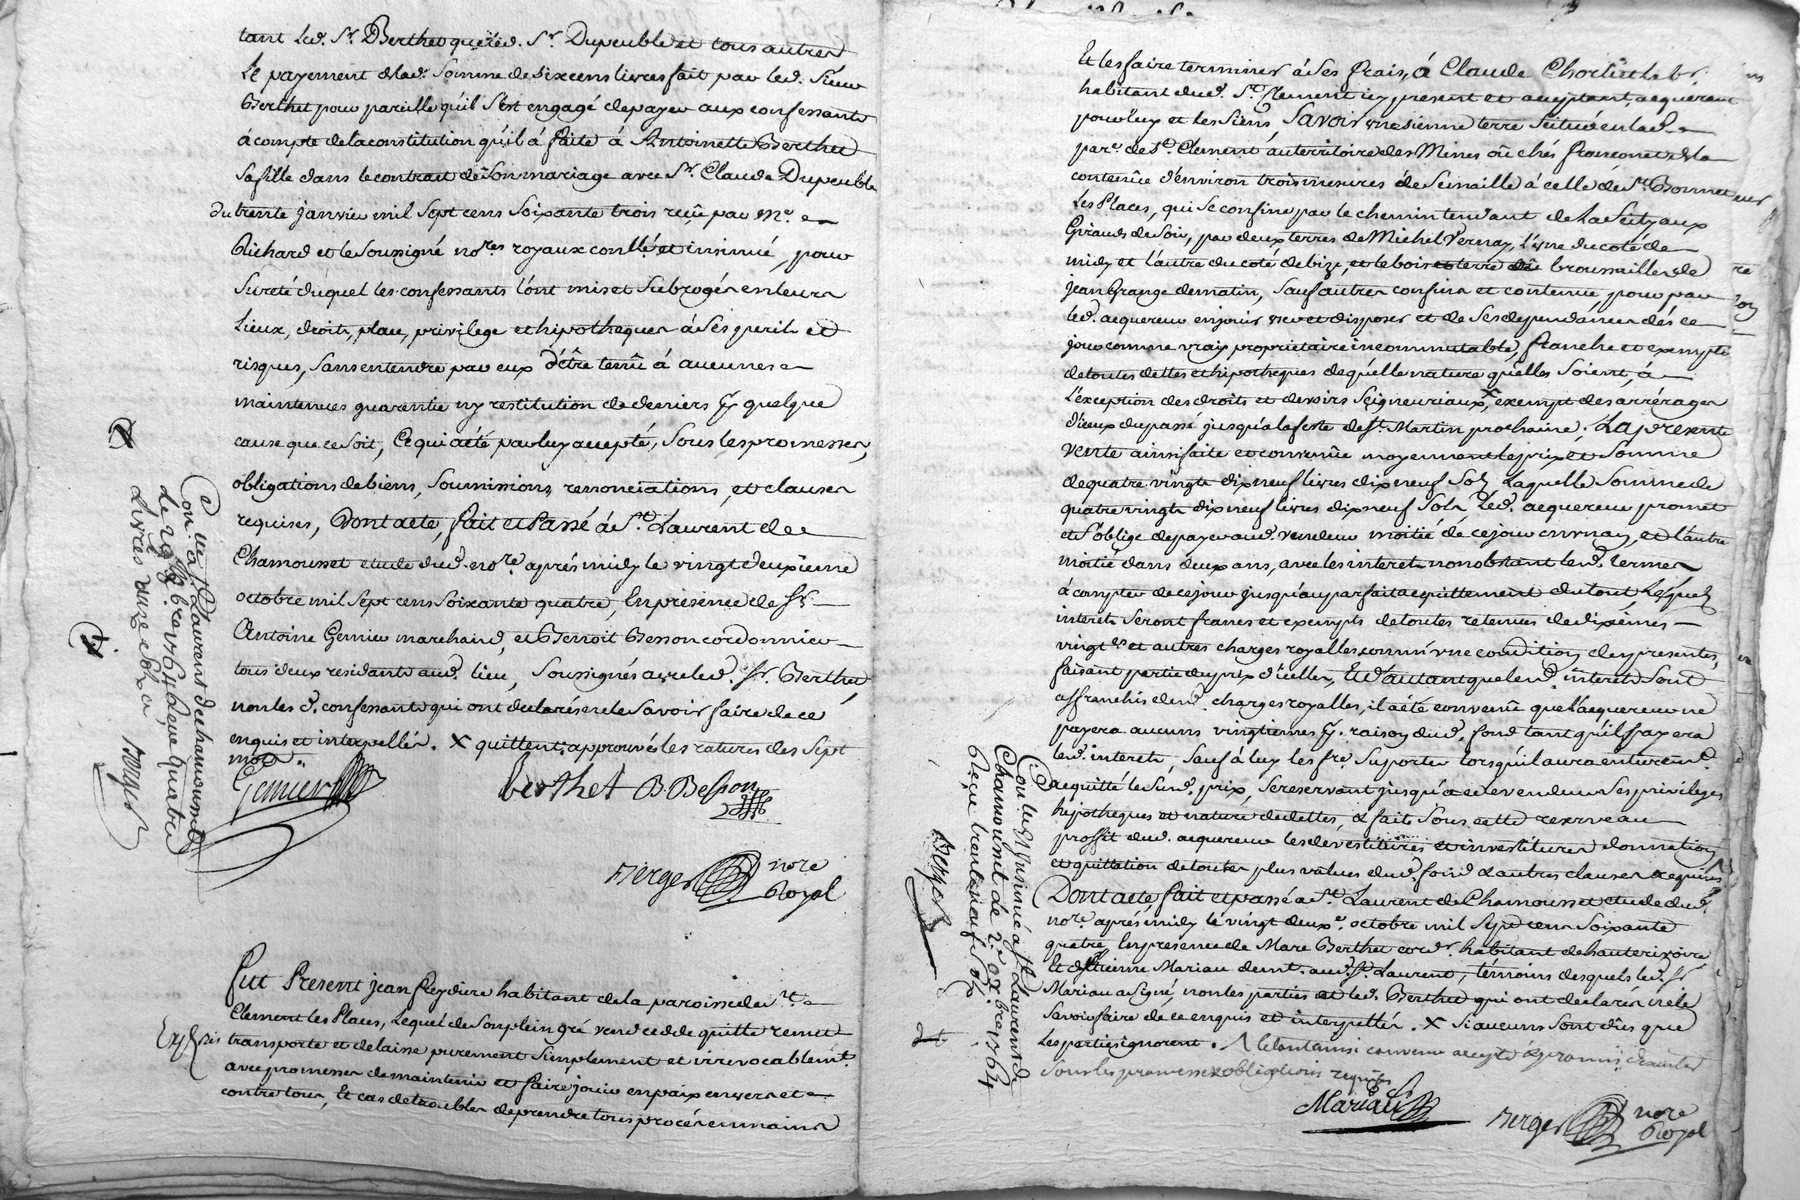 tant led. Sr. Berthet que led. Sr. Dupeuble et tous autres
le payement de lad. somme de six cens livres fait par led. sieur
Berthet pour pareille qu'il s'est engagé de payer aux confessants
à compte de la constitution qu'il à faite à Antoinette Berthet
sa fille dans le contrat de son mariage avec Sr. Claude Dupeuble
du trente janvier mil sept cens soixante trois reçû par Me.
Richard et le soussigné nores. royaux conllé et insinué, pour
sureté duquel les confessants l'ont mis et subrogés en leurs
lieux, droits, place, privilege et hipotheques à ses perils et
risques, sans entendre par eux d'être tenû à aucunes
maintenues guarentie ny restitution de deniers pr. quelque
cause que ce soit, ce qui a été par luy accepté, sous les promesses,
obligations de biens, soumissions, renonciations, et clauses
requises, Dont acte, fait et Passé à St. Laurent de
Chamousset etude dud. nore. après midy le vingt deuxieme
octobre mil sept cens soixante quatre, En présence de sr.
Antoine Genier marchand, et Benoit Besson cordonnier
tous deux residants aud. lieu, soussignés avec led. sr. Berthet,
non les d. confessants qui ont declarés ne le savoir faire de ce
enquis et interpellés. X quittent; approuvés les ratures des sept
mots
Genier
berthet B. Besson
Berger nore
Royal
Con. à St. Laurent de chamousset
le 29 8bre 1764 Reçu quatre
livres onze sols
Berger
Fut Present jean freydiere habitant de la paroisse de St.
Clement les Places, lequel de son plein gré vend cede quitte remet
Exp.
transporte et delaisse purement simplement et irrevocablemt.
avec promesses de maintenir et faire jouir en paix envers et
contre tous, Et cas de troubles de prendre tous procès en mains
Et les faire terminer à ses frais, à Claude
habitant dud. St. Clement icy present et acceptant, acquereur
pour lux et les siens Savoir une sienne terre située en lad.
pare. de St. Clement au territoire des Mines où chés franconet de la
contenüe d'environ trois mesures de semaille à celle de St. Bonnet
Les Places, qui se confine par le chemin tendant de aux
Girauds de soir, par deux terres de Michel Vernay, l'une du coté de
midy et l'autre du coté de bize, et le bois broussailles de
jean Grange de matin, sauf autres confins et contenüe, pour par
led. acquereur en jouir user et disposer et de ses dependances dés ce
jour comme vray proprietaire incommutable, franche et exempte
de toutes dettes et hipotheques de quelle nature qu'elles soient, à
l'exception des droits et devoirs seigneuriaux, X exempt des arrérages
d'iceux du passé jusqu'à la feste de st. Martin prochaine, La presente
vente ainsi faite et convenüe moyennant le prix et somme
de quatre vingt dix neuf livres dix neuf sols laquelle somme de
quatre vingt dix neuf livres dix neuf sols led. acquereur promet
et s'oblige de payer aud. vendeur moitié de ce jour en un an, et l'autre
moitié dans deux ans, avec les interets nonobstant led. termes
à compter de ce jour jusqu'au parfait acquittement du tout, lesquels
interets seront francs et exempts de toutes retenues de dixiémes
vingts. et autres charges royalles comme une condition des presentes,
faisant partie du prix d'icelles, Et d'autant que lesd. interets sont
affranchis desd. charges royalles, il a été convenü que l'acquereur ne
payera aucuns vingtiemes pr. raison dud. fond tant qu'il payera
led. interets, sauf à luy les fre. suporter lorsqu'il aura entierem.t
acquitté le sud. prix, se reservant jusqu'à ce le vendeur ses privileges
hipotheques et nature de dettes, a fait sous cette reserve au
proffit dud. acquereur les devestitures et investitures donnation
et quittation de toutes plus values dud. fond & autres clauses requises
Dont acte fait et passé à St. Laurent de Chamousset etude dud.
nore. après midy le vingt deuxe. octobre mil sept cens soixante
quatre, En presence de Marc Berthet cordr. habitant de hauterivoire
Et d'Etienne Mariau demt. aud. St. Laurent, témoins desquels led. sr.
Mariau a signé, non les parties et led. Berthet qui ont déclarés ne le
savoir faire de ce enquis et interpellés. X si aucuns sont dûs que
les parties ignorent. / le tout ainsi convenu accepté & promis
sous les promesses obligations requises
Mariau
Berger nore
Royal
Con. & Insinué à St. Laurent de
Chamousset le 2e. 9bre 1764
Reçu trente neuf sols
Berger